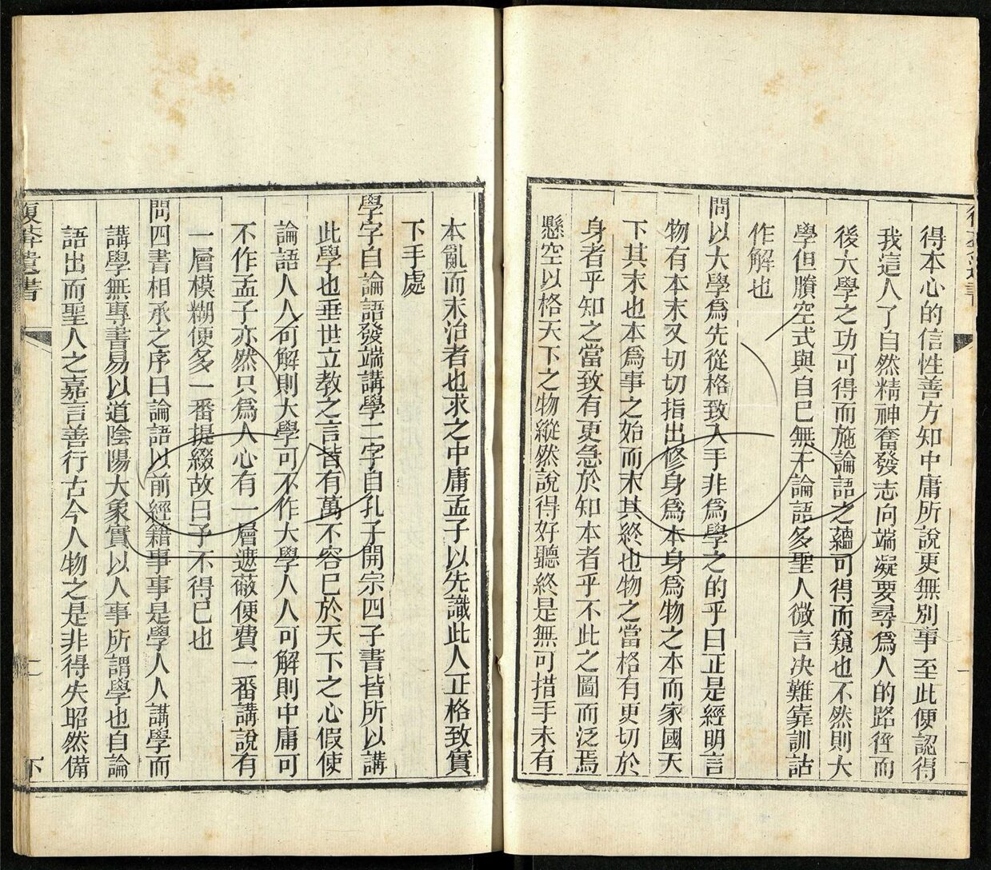 得本心的信性善方知中庸所說更無別事至此便認得
我這人了自然精神奮發志向端凝要尋爲人的路徑而
後大學之功可得而施論語之蘊可得而窺也不然則大
學但賸空式與自己無干論語多聖人微言决難靠訓詁
作解也
問以大學爲先從格致入手非爲學之的乎曰正是經明言
物有本末又切切指出修身爲本身爲物之本而家國天
下其末也本爲事之始而末其終也物之當格有更切於
身者乎知之當致有更急於知本者乎不此之圖而泛焉
懸空以格天下之物縱然說得好聽終是無可措手未有
本亂而末治者也求之中庸孟子以先識此人正格致實
下手處
學字自論語發端講學二字自孔子開宗四子書皆所以講
此學也垂世立教之言皆有萬不容已於天下之心假使
論語人人可解則大學可不作大學人人可解則中庸可
不作孟子亦然只爲人心有一層遮蔽便費一番講說有
一層模糊便多一番提綴故曰予不得已也
問四書相承之序曰論語以前經籍事事是學人人講學而
講學無專書易以道陰陽大象實以人事所謂學也自論
語出而聖人之嘉言善行古今人物之是非得失昭然備
復葊遺書
下